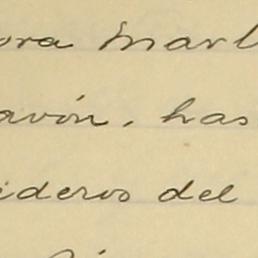 ora Marl
avón, has
ideros del